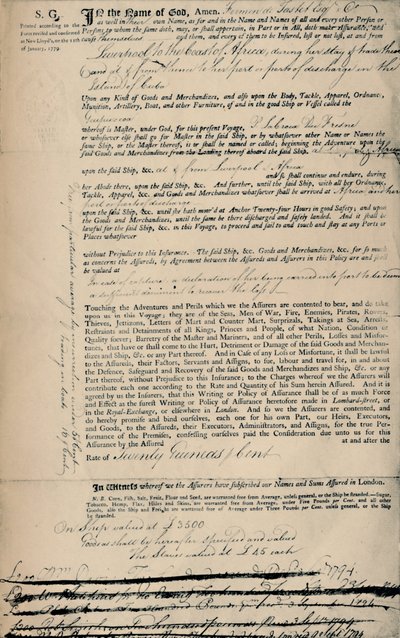 S. G.
Printed according to the
Form revised and confirmed
at New Lloyd's, on the 12th
of January, 1779.
In the Name of God, Amen. Fermin de Tastet Esq & Co
as well in their own Name, as for and in the Name and Names of all and every other Person or
Persons, to whom the same doth, may, or shall appertain, in Part or in All, doth make assurance, and
cause themselves and them, and every of them to be Insured, lost or not lost, at and from
Liverpool to the Coast of Africa, during her stay & trade there
and at & from thence to her port or ports of discharge in the
Island of Cuba
Upon any Kind of Goods and Merchandizes, and also upon the Body, Tackle, Apparel, Ordnance,
Munition, Artillery, Boat, and other Furniture, of and in the good Ship or Vessel called the
Guipuzcoa
whereof is Master, under God, for this present Voyage,
or whosoever else shall go for Master in the said Ship, or by whatsoever other Name or Names the
same Ship, or the Master thereof, is or shall be named or called; beginning the Adventure upon the
said Goods and Merchandizes from the Loading thereof aboard the said Ship,
upon the said Ship, &c. at & from Liverpool & Africa
and so shall continue and endure, during
her Abode there, upon the said Ship, &c. And further, until the said Ship, with all her Ordnance,
Tackle, Apparel, &c. and Goods and Merchandizes whatsoever shall be arrived at Africa and her
port or ports of discharge
upon the said Ship, &c. until she hath moor'd at Anchor Twenty-four Hours in good Safety; and upon
the Goods and Merchandizes, until the same be there discharged and safely landed. And it shall be
lawful for the said Ship, &c. in this Voyage, to proceed and sail to and touch and stay at any Ports or
Places whatsoever
without Prejudice to this Insurance. The said Ship, &c. Goods and Merchandizes, &c. for so much
as concerns the Assureds, by Agreement between the Assureds and Assurers in this Policy are and shall
be valued at
In case of capture, a declaration of her being carried into port to be deem'd
a sufficient
Touching the Adventures and Perils which we the Assurers are contented to bear, and do take
upon us in this Voyage; they are of the Seas, Men of War, Fire, Enemies, Pirates, Rovers,
Thieves, Jettizons, Letters of Mart and Counter Mart, Surprizals, Takings at Sea, Arrests,
Restraints and Detainments of all Kings, Princes and People, of what Nation, Condition or
Quality soever; Barretry of the Master and Mariners, and of all other Perils, Losses and Misfor-
tunes, that have or shall come to the Hurt, Detriment or Damage of the said Goods and Merchan-
dizes and Ship, &c. or any Part thereof. And in Case of any Loss or Misfortune, it shall be lawful
to the Assureds, their Factors, Servants and Assigns, to sue, labour and travel for, in and about
the Defence, Safeguard and Recovery of the said Goods and Merchandizes and Ship, &c. or any
Part thereof, without Prejudice to this Insurance; to the Charges whereof we the Assurers will
contribute each one according to the Rate and Quantity of his Sum herein Assured. And it is
agreed by us the Insurers, that this Writing or Policy of Assurance shall be of as much Force
and Effect as the surest Writing or Policy of Assurance heretofore made in Lombard-street, or
in the Royal-Exchange, or elsewhere in London. And so we the Assurers are contented, and
do hereby promise and bind ourselves, each one for his own Part, our Heirs, Executors,
and Goods, to the Assureds, their Executors, Administrators, and Assigns, for the true Per-
formance of the Premises, confessing ourselves paid the Consideration due unto us for this
Assurance by the Assured
at and after the
Rate of Twenty Guineas p Cent
In Witness whereof we the Assurers have subscribed our Names and Sums Assured in London.
N. B. Corn, Fish, Salt, Fruit, Flour and Seed, are warranted free from Average, unless general, or the Ship be stranded.—Sugar,
Tobacco, Hemp, Flax, Hides and Skins, are warranted free from Average, under Five Pounds per Cent. and all other
Goods, also the Ship and Freight, are warranted free of Average under Three Pounds per Cent. unless general, or the Ship
be stranded.
On Ship valued at £3500
Goods as shall by hereafter specified and valued
The Slaves valued at £45 each
1794